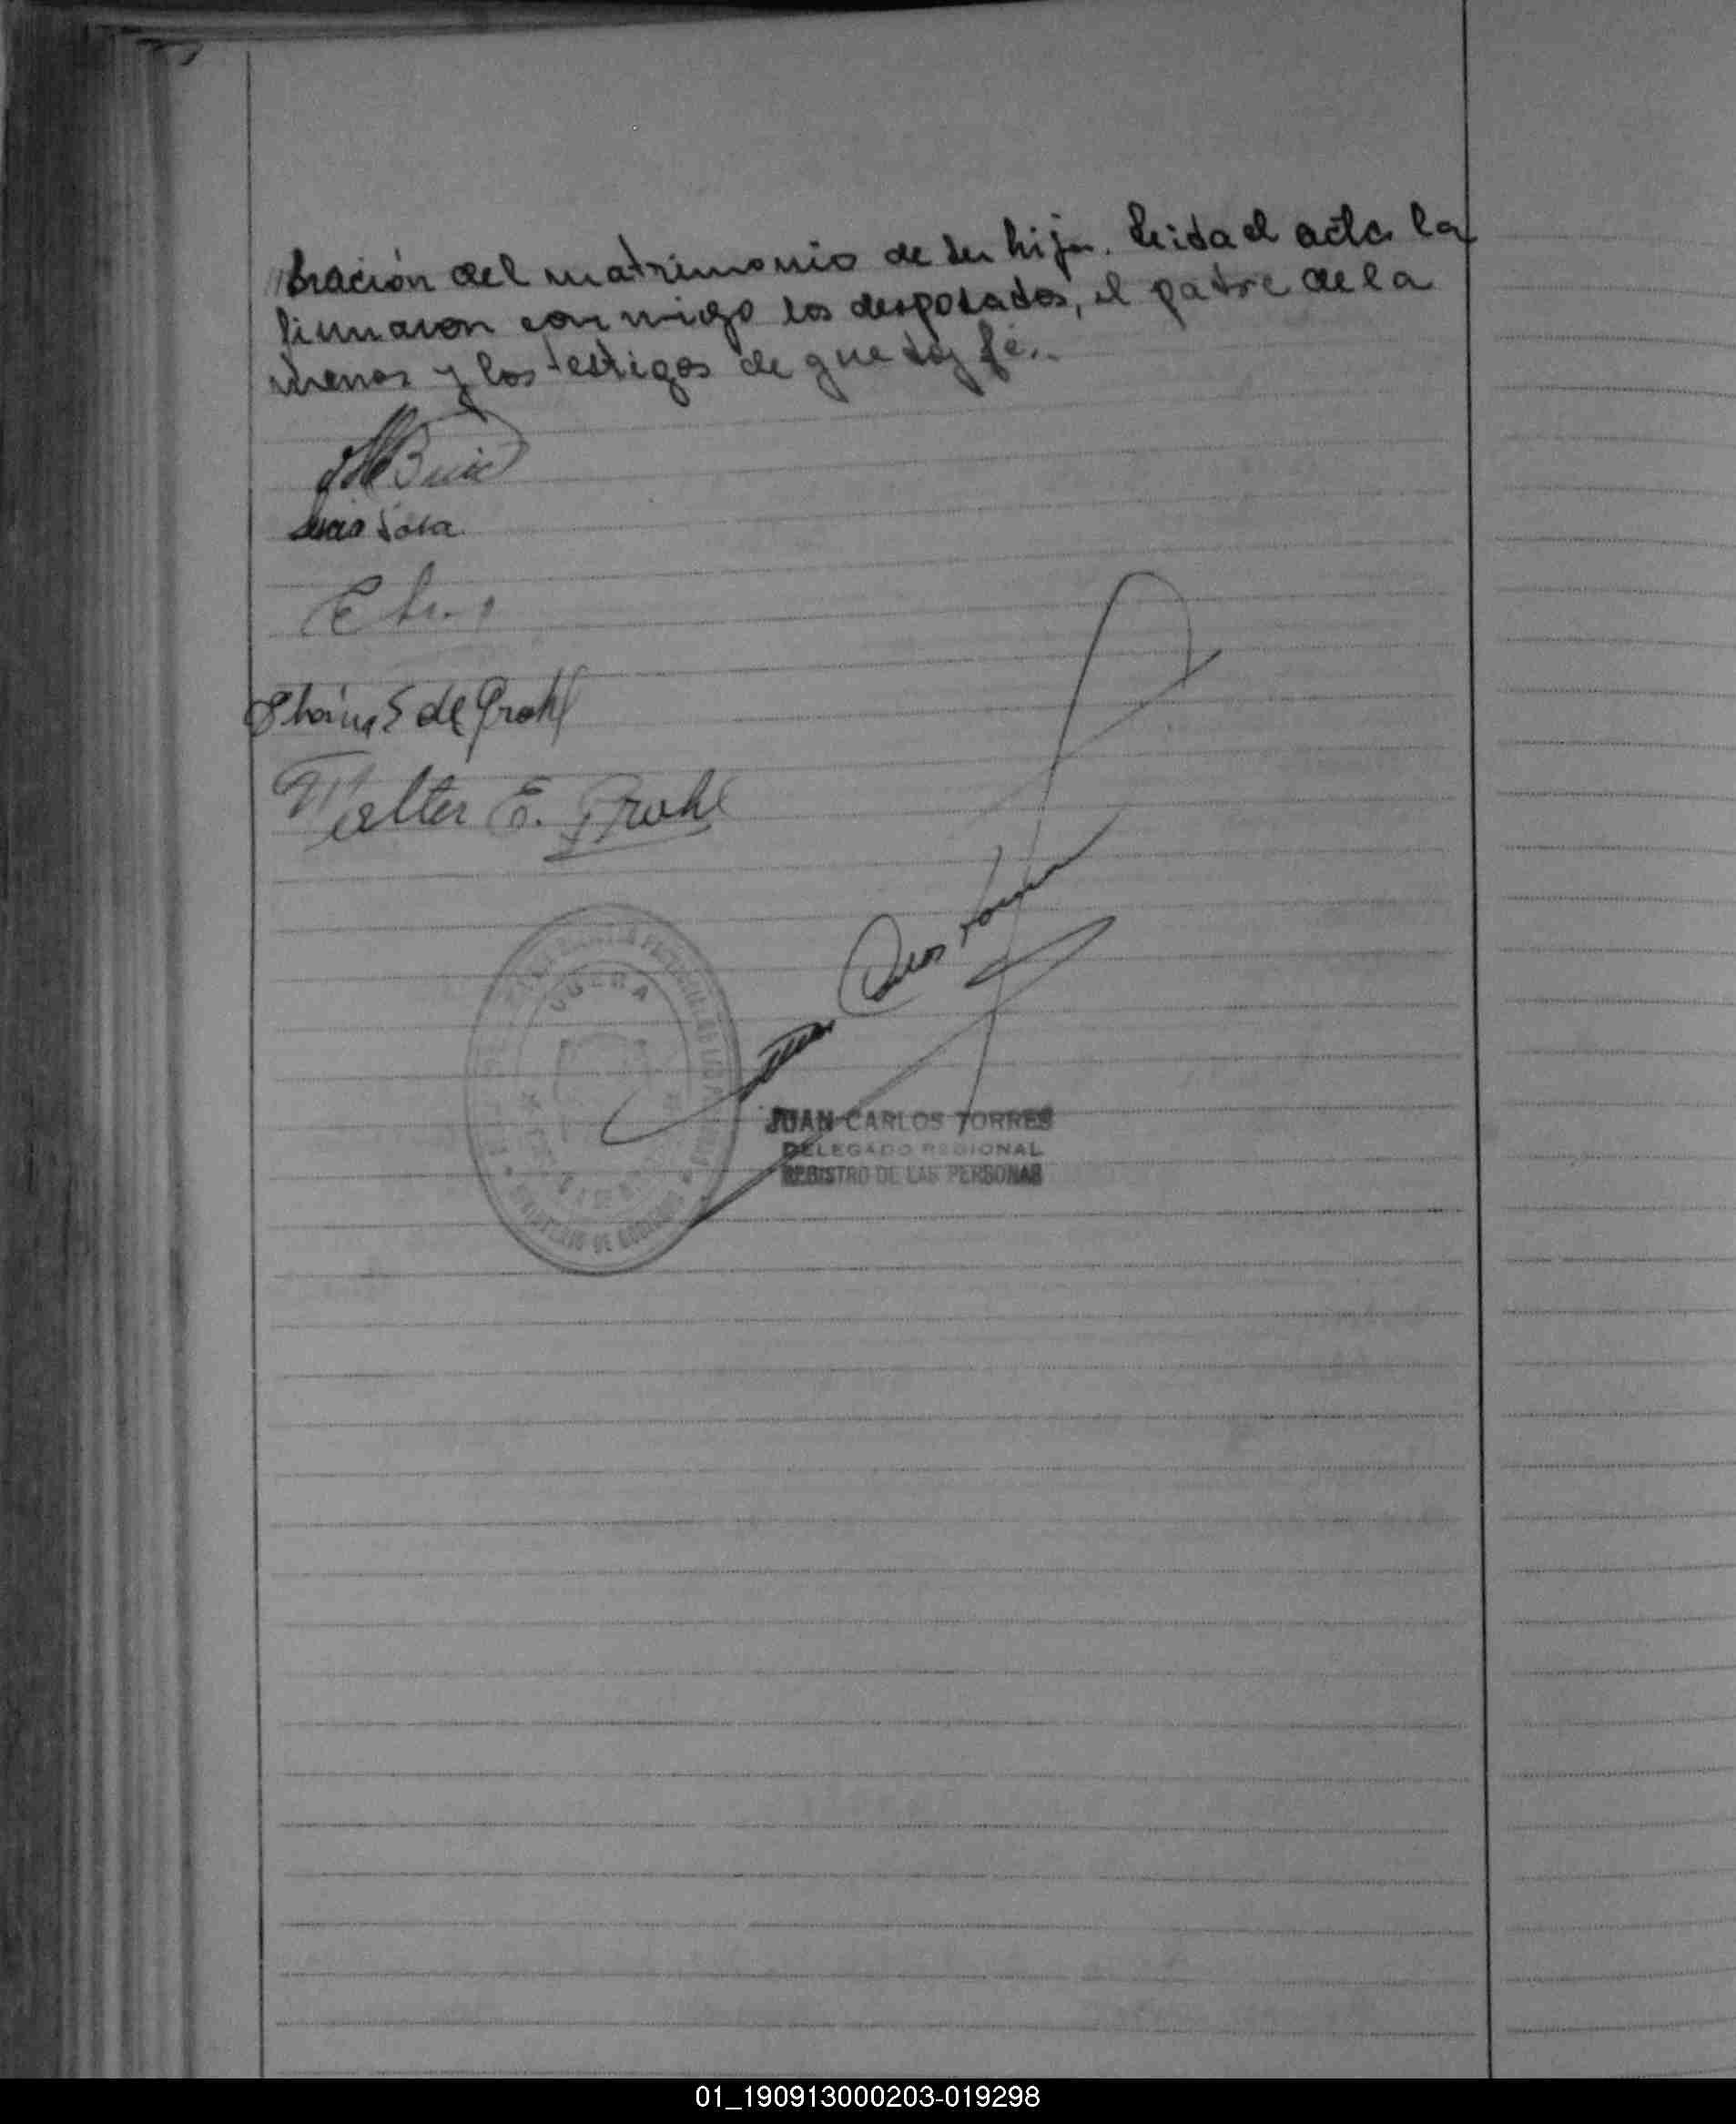 bración del matrimonio de su hija. Leida el acta la
firmaron conmigo los desposados, el padre de la
menor y los testigos de que doy fé..
Sosa
de Prohl
Walter E. Prohl
UGERA
MINISTERIO DE GOBIERNO
JUAN CARLOS TORRES
DELEGADO REGIONAL
REGISTRO DE LAS PERSONAS
01_190913000203-019298